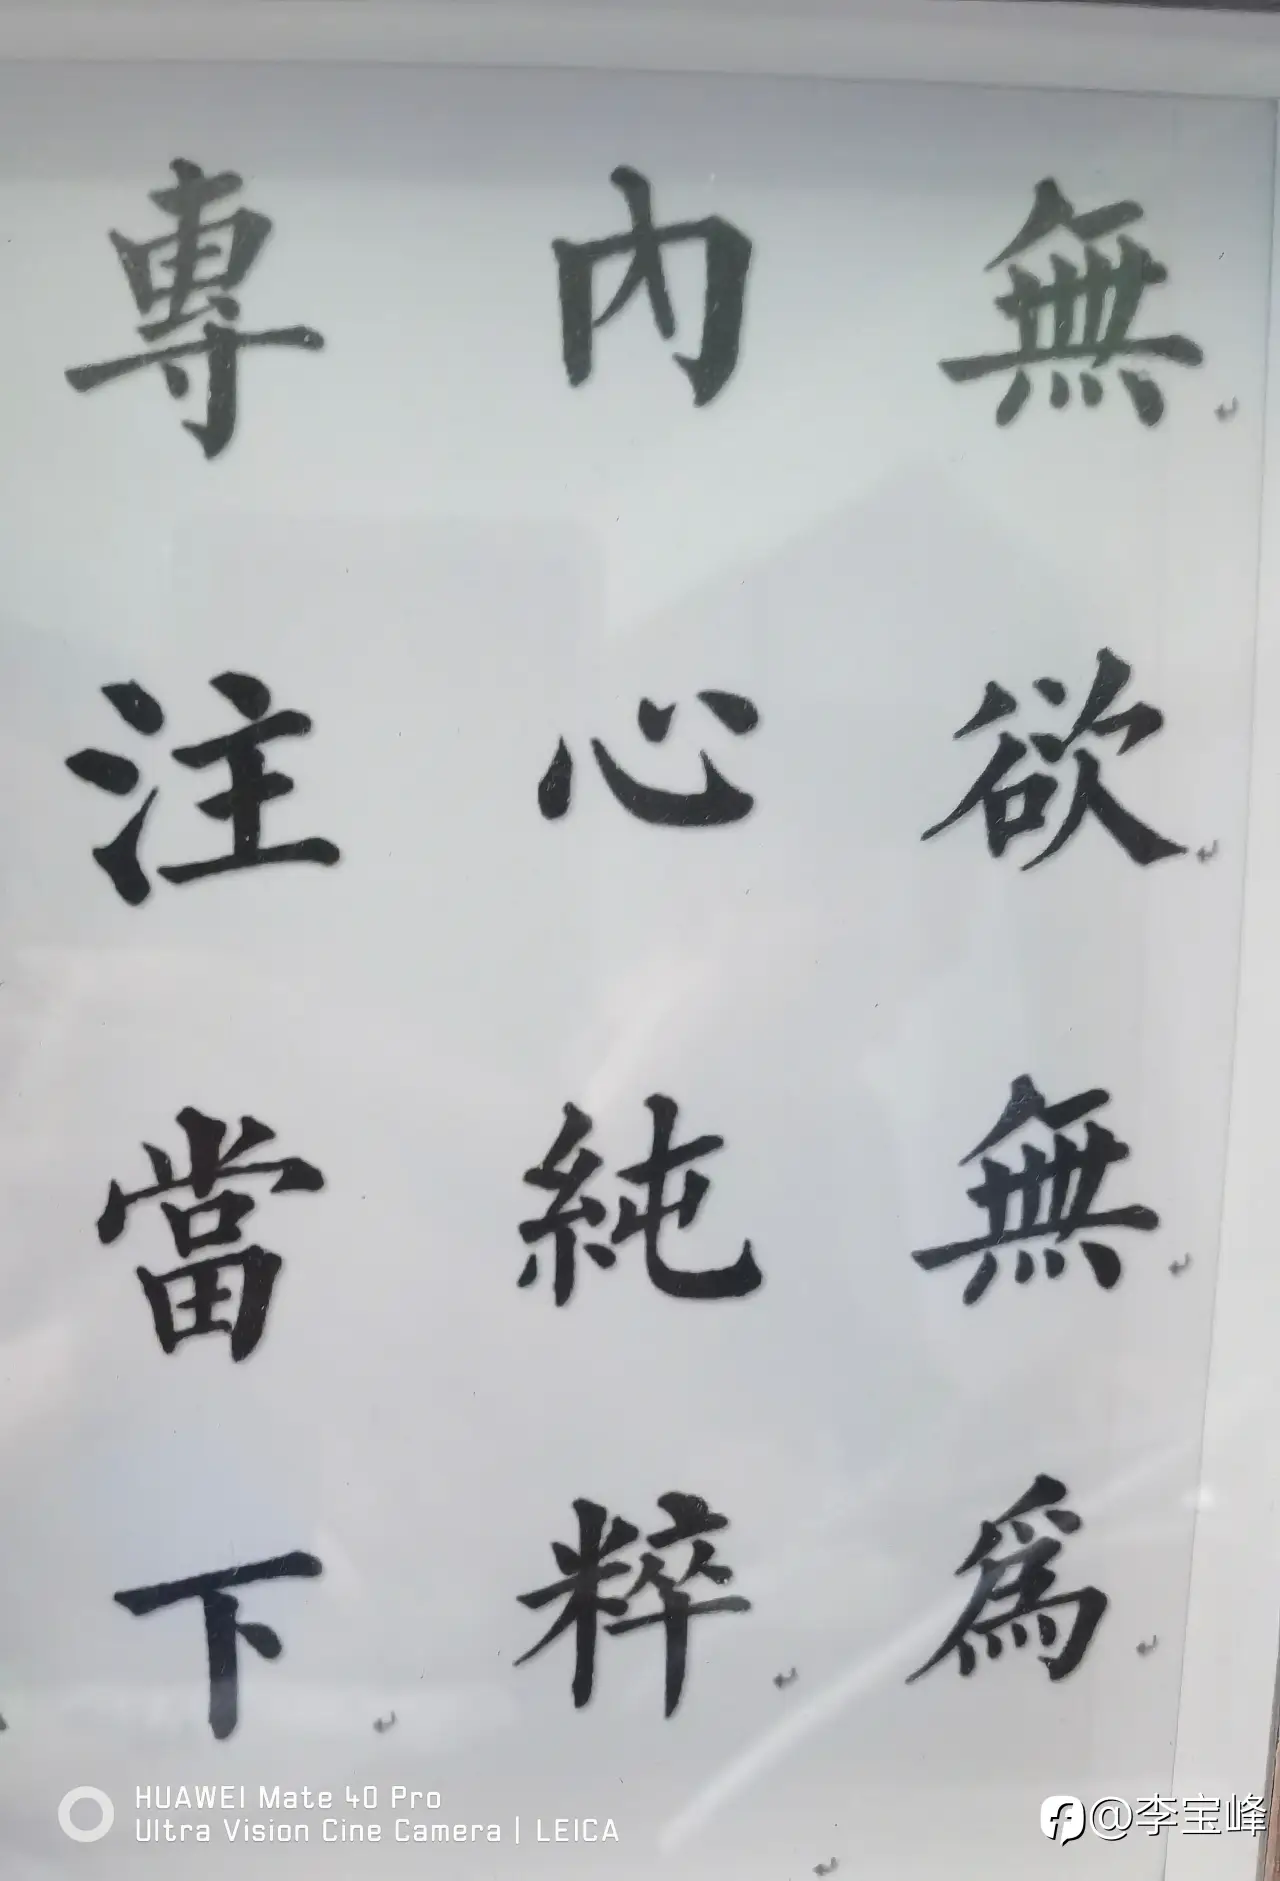 無欲無爲
內心純粹
專注當下
HUAWEI Mate 40 Pro
Ultra Vision Cine Camera | LEICA
@李宝峰